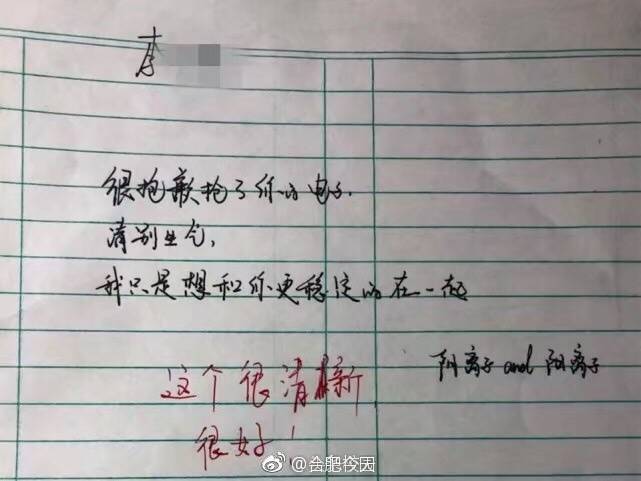 李
很抱歉抢了你的电子.
请别生气,
我只是想和你更稳定的在一起
阴离子and阳离子
这个很清新
很好!
@合肥校园